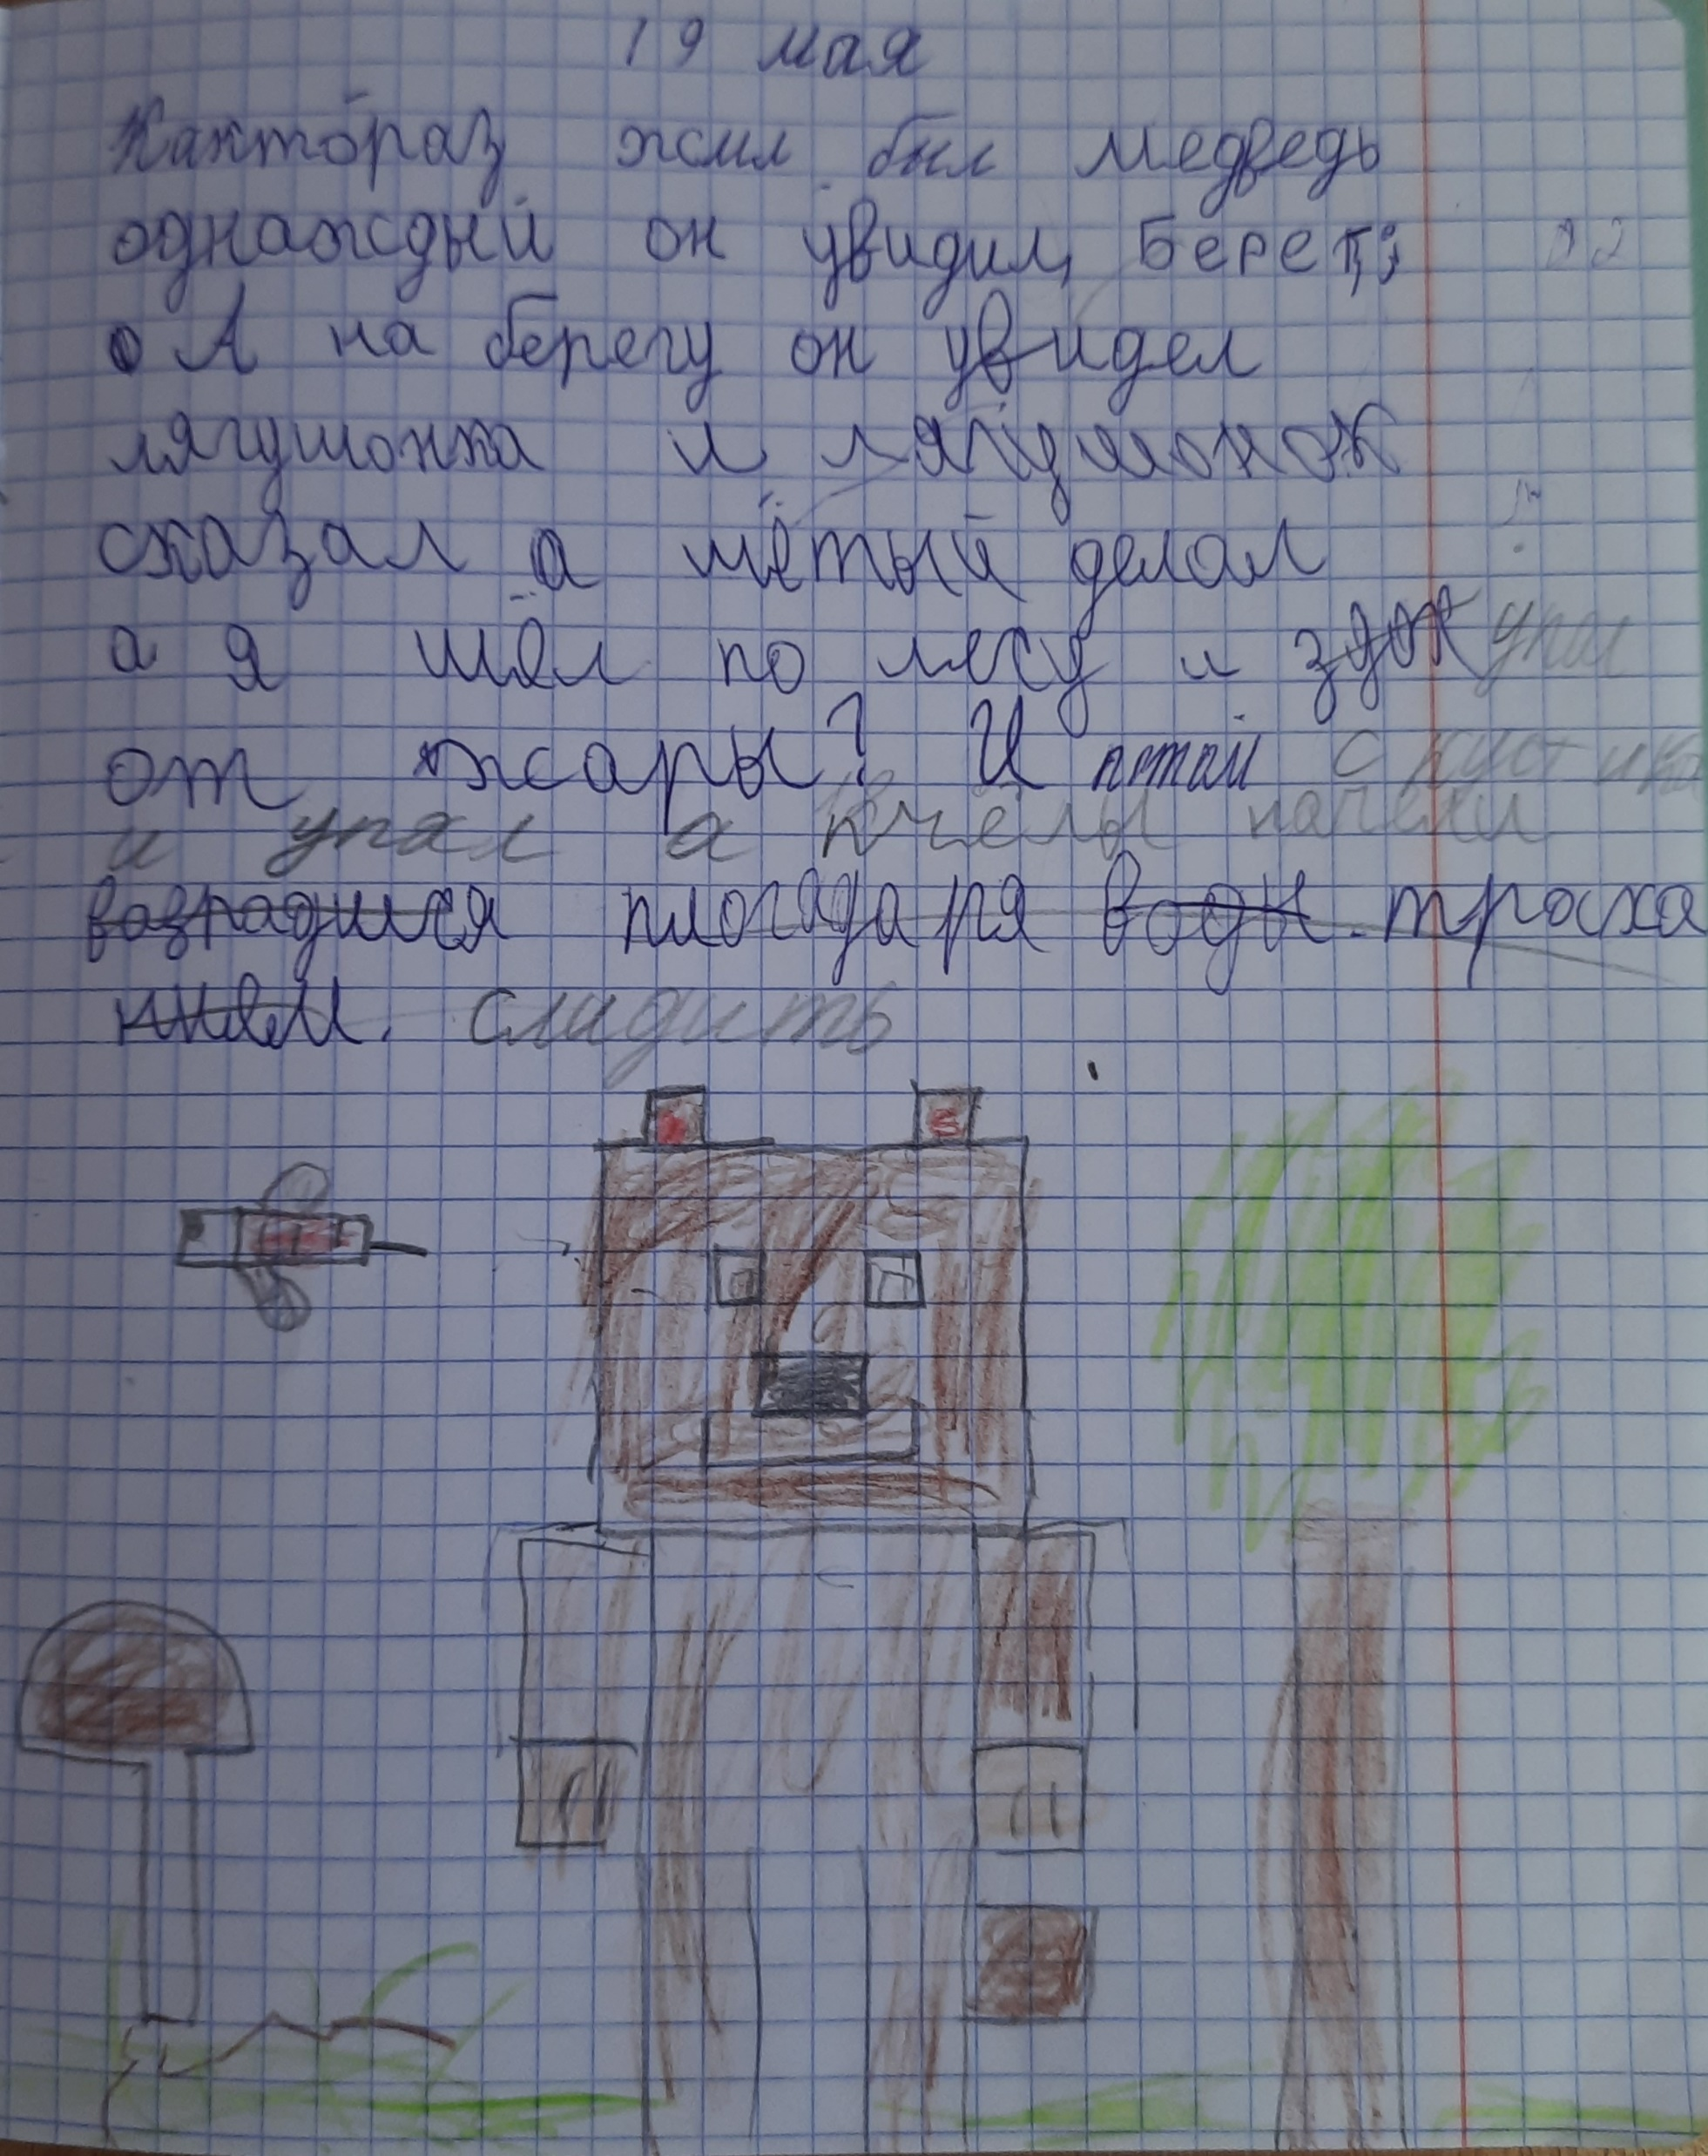 19 мая
Кактораз жил был медведь
однаждый он увидил, Берег;
А на берегу он увидел
лягушонка и лягушонок
сказал а шётый делал
а я шёл по лесу и упал
от жары? И птом с кустика
и упал а кчёлы начели
возрадился плогадаря воды. траха
нием. сладить